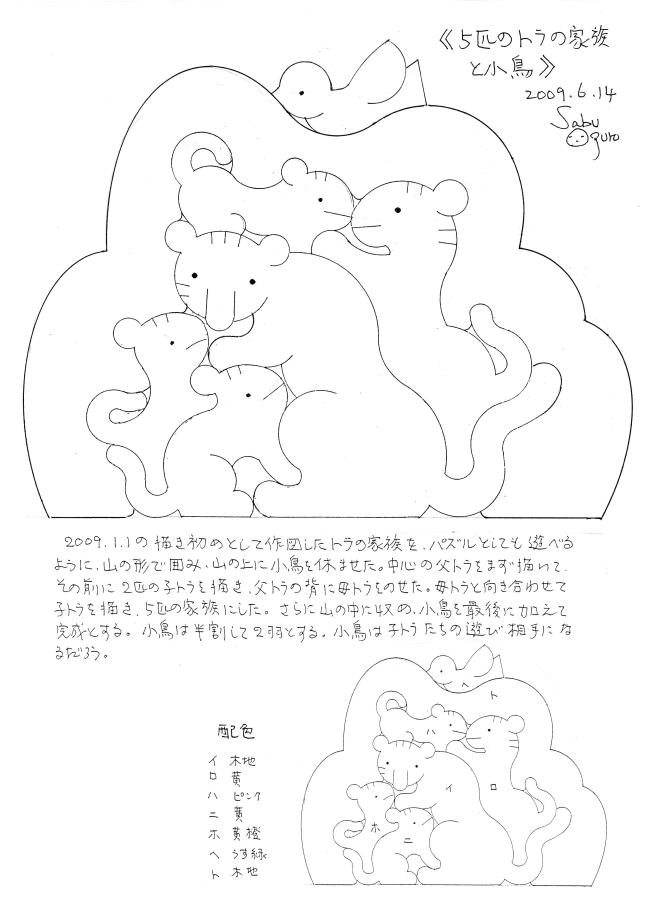 《5匹のトラの家族
と小鳥》
2009.6.14
Sabu
Oguro
2009.1.1の描き初めとして作図したトラの家族を、パズルとしても遊べる
ように、山の形で囲み、山の上に小鳥を休ませた。中心の父トラをまず描いて、
その前に2匹の子トラを描き、父トラの背に母トラをのせた。母トラと向き合わせて
子トラを描き、5匹の家族にした。さらに山の中に収め、小鳥を最後に加えて
完成とする。小鳥は半割して2羽とする。小鳥は子トラたちの遊び相手にな
るだろう。
ヘ
ト
ハ
イ
ロ
ホ
ニ
配色
イ 木地
ロ 黄
ハ ピンク
ニ 黄
ホ 黄橙
ヘ うす緑
ト 木地